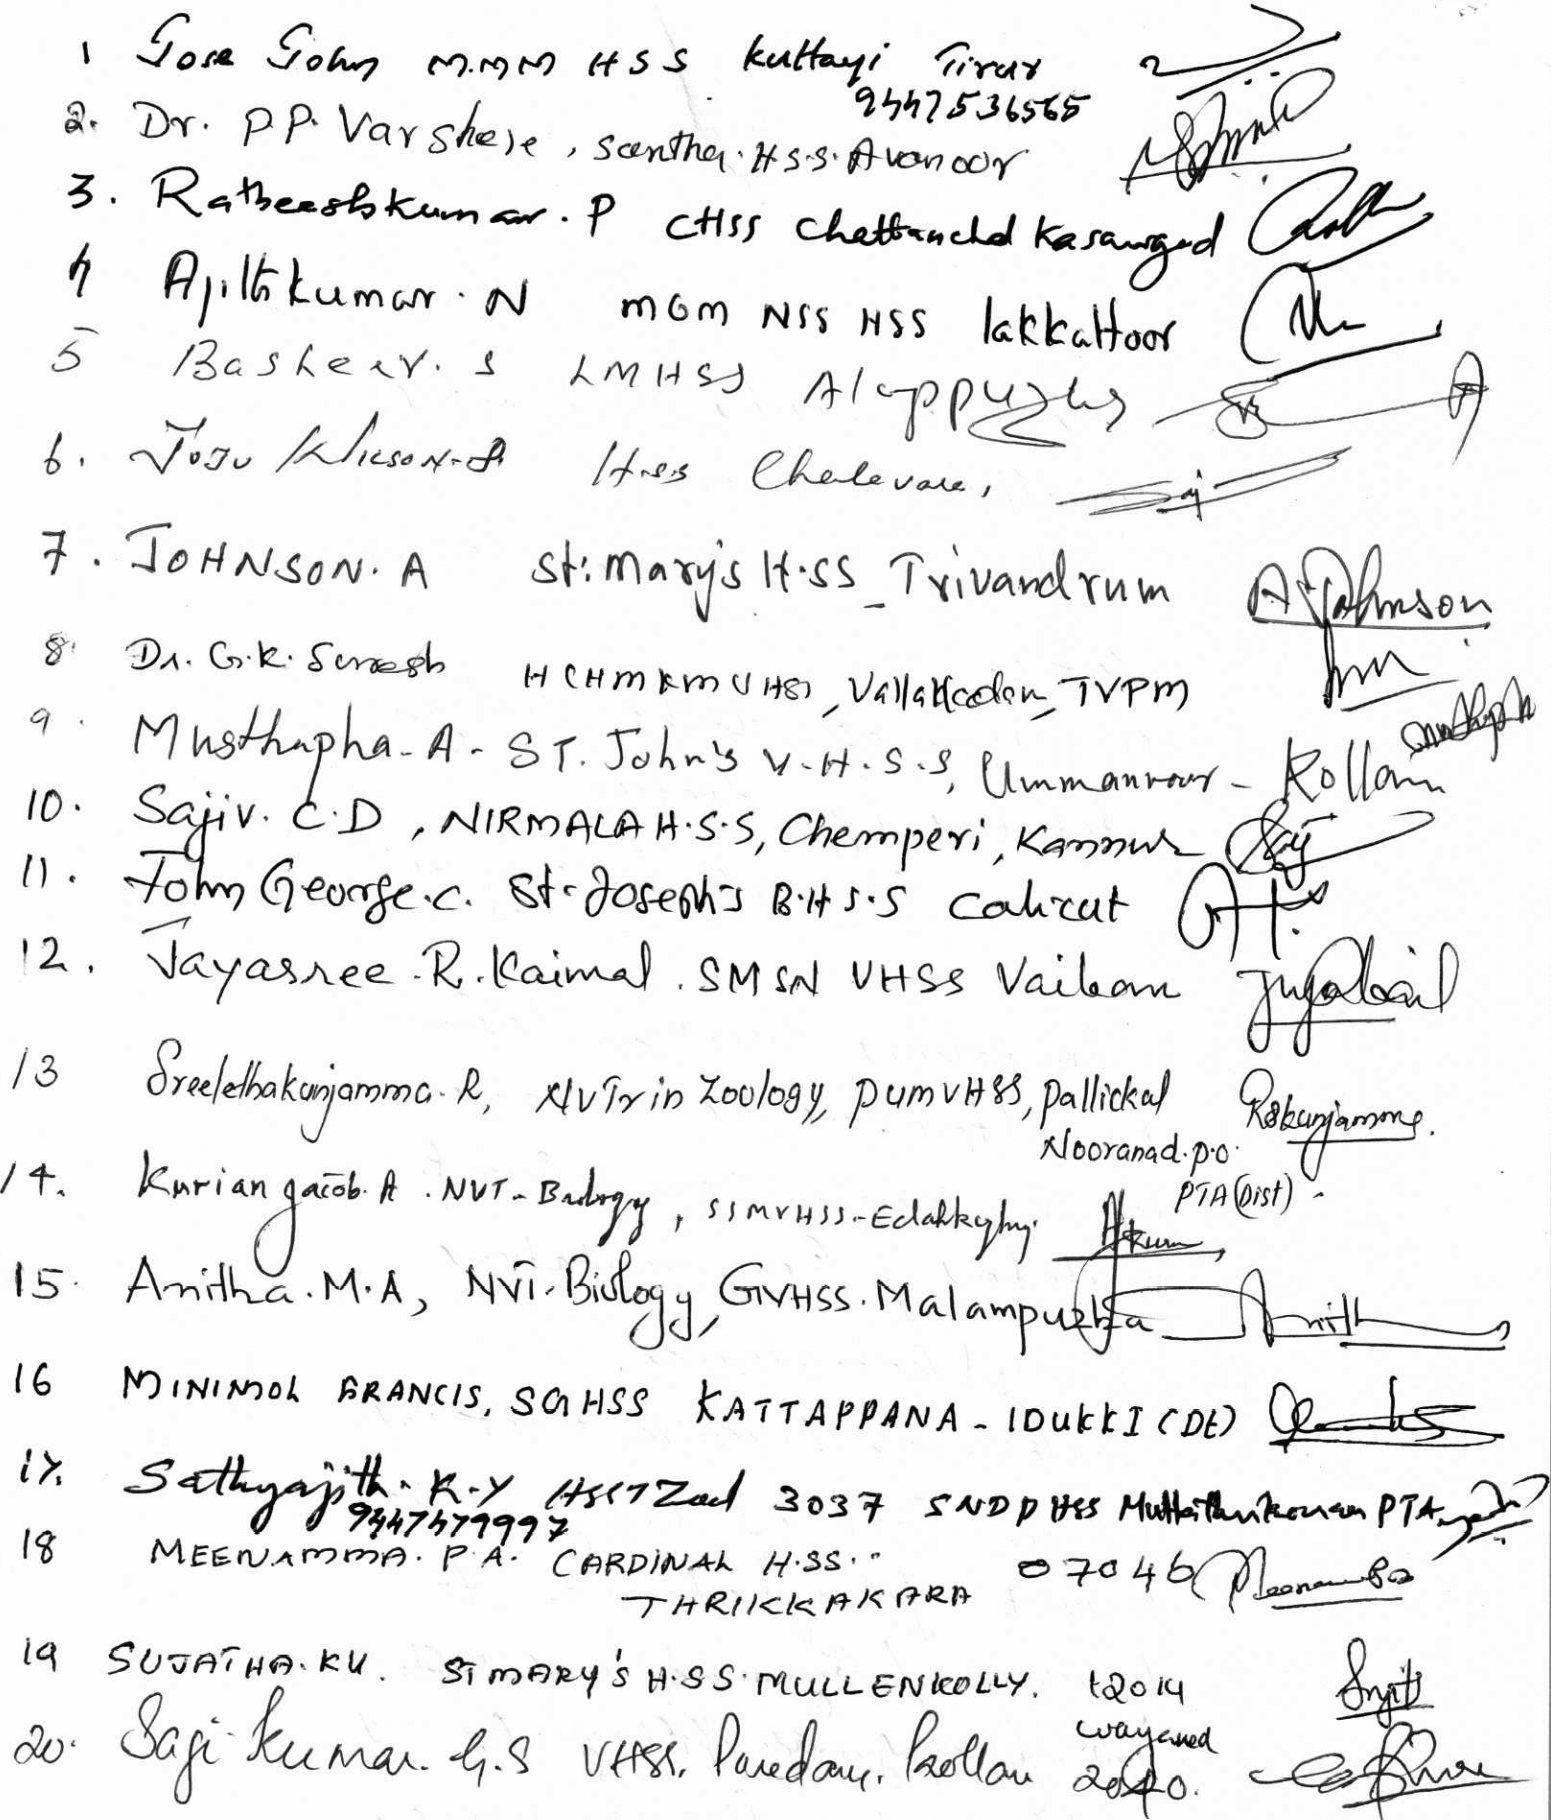 1 Jose John M.M.M HSS Kuttayi Tirur
9447536565
2. Dr. P.P. Varghese, Santha. H.S.S. Avanoor
3. Ratheeshkumar. P CHSS Chattanchal Kasaragod
4 Ajithkumar. N MGM NSS HSS lakkattoor
5 Basheer. S LMHSS Alappuzha
6. Joju Wilson. HSS Chalavara,
7. JOHNSON. A St: Mary's H.SS_Trivandrum A. Johnson
8. Dr. G.R. Suresh HCHMKMVHSS, Vallakkadavu, TVPM
9. Musthapha. A - ST. John's V.H.S.S, Ummannoor - Kollam
10. Sajiv. C.D, NIRMALA H.S.S, Chemperi, Kannur
11. John George.C. St. Joseph's B.H.S.S Calicut
12. Jayasree. R. Kaimal. SMSN VHSS Vaikom
13 Sreelethakunjamma. R, NVTr in Zoology, PUMVHSS, Pallickal Rskunjamma.
Nooranad. P.O.
PTA (Dist)
14. Kurian Jacob. A. NVT - Biology, SSMVHSS - Edakkazhiyur
15. Anitha. M.A, NVT. Biology, GVHSS. Malampuzha
16 MINIMOL FRANCIS, SGHSS KATTAPPANA - IDUKKI (Dt)
17. Sathyajith. K.Y HSST Zool 3037 SNDP HSS PTA
9447479997
18 MEENAMMA. P.A. CARDINAL H.SS. 07046
THRIKKAKARA
19 SUJATHA. K.U. ST MARY'S H.S.S. MULLENKOLLY. 12014
Wayanad
20. Saji Kumar. G.S VHSS. Kollam